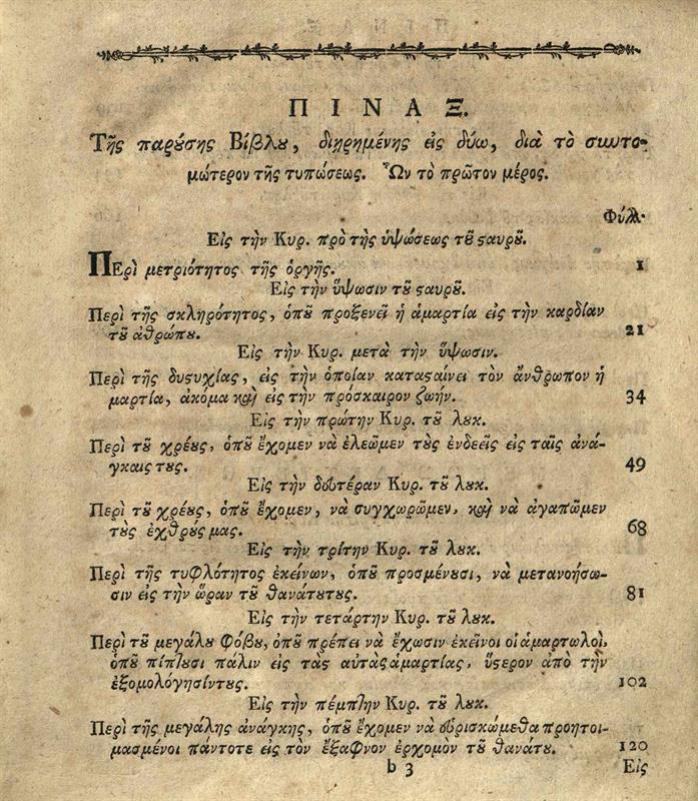 ΠΙΝΑΞ.
Τῆς παρούσης Βίβλου, διῃρημένης εἰς δύω, διὰ τὸ συντο-
μώτερον τῆς τυπώσεως. Ὧν τὸ πρῶτον μέρος.
Φύλλ.
Εἰς τὴν Κυρ. πρὸ τῆς ὑψώσεως τοῦ ϛαυροῦ.
ΠΕρὶ μετριότητος τῆς ὀργῆς. 1
Εἰς τὴν ὕψωσιν τοῦ ϛαυροῦ.
Περὶ τῆς σκληρότητος, ὁποῦ προξενεῖ ἡ ἁμαρτία εἰς τὴν καρδίαν
τοῦ ἀθρώπου. 21
Εἰς τὴν Κυρ. μετὰ τὴν ὕψωσιν.
Περὶ τῆς δυϛυχίας, εἰς τὴν ὁποίαν καταϛαίνει τὸν ἄνθρωπον ἡ
μαρτία, ἀκόμα καὶ εἰς τὴν πρόσκαιρον ζωήν. 34
Εἰς τὴν πρώτην Κυρ. τοῦ λουκ.
Περὶ τοῦ χρέους, ὁποῦ ἔχομεν νὰ ἐλεῶμεν τοὺς ἐνδεεῖς εἰς ταῖς ἀνά-
γκαις τους. 49
Εἰς τὴν δευτέραν Κυρ. τοῦ λουκ.
Περὶ τοῦ χρέους, ὁποῦ ἔχομεν, νὰ συγχωρῶμεν, καὶ νὰ ἀγαπῶμεν
τοὺς ἐχθρούς μας. 68
Εἰς τὴν τρίτην Κυρ. τοῦ λουκ.
Περὶ τῆς τυφλότητος ἐκείνων, ὁποῦ προσμένουσι, νὰ μετανοήσω-
σιν εἰς τὴν ὥραν τοῦ θανάτουτους. 81
Εἰς τὴν τετάρτην Κυρ. τοῦ λουκ.
Περὶ τοῦ μεγάλου φόβου, ὁποῦ πρέπει νὰ ἔχωσιν ἐκεῖνοι οἱ ἁμαρτωλοὶ,
ὁποῦ πίπτουσι πάλιν εἰς τὰς αὐτὰς ἁμαρτίας, ὕϛερον ἀπὸ τὴν
ἐξομολόγησίντους. 102
Εἰς τὴν πέμπτην Κυρ. τοῦ λουκ.
Περὶ τῆς μεγάλης ἀνάγκης, ὁποῦ ἔχομεν νὰ εὑρισκώμεθα προητοι-
μασμένοι πάντοτε εἰς τὸν ἔξαφνον ἐρχομὸν τοῦ θανάτου. 120
b 3 Εἰς